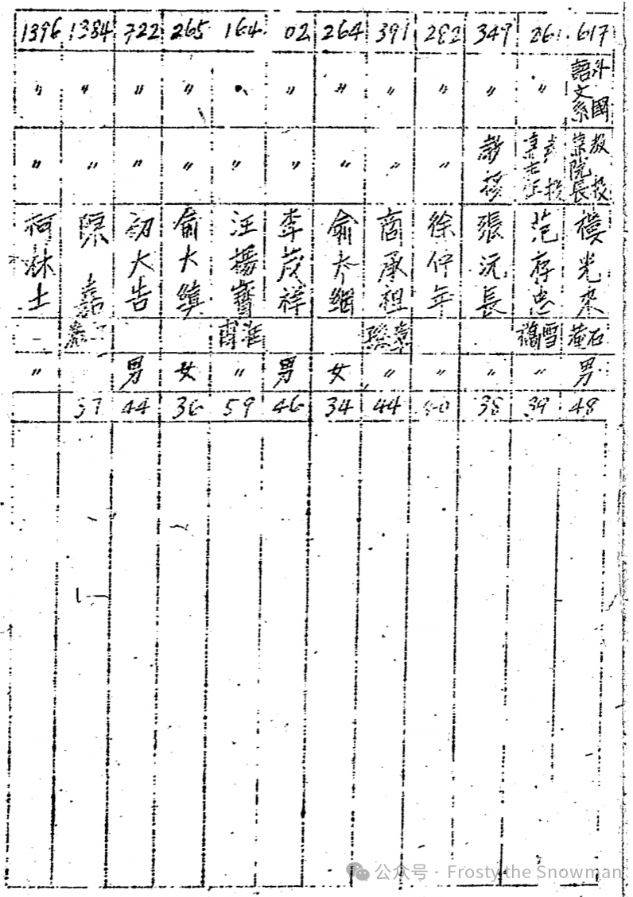 617
外國
語文系
教授
兼院長
樓光來
石菴
男
48
26
〃
教授
兼主任
范存忠
雪橋
〃
39
349
〃
教授
張沅長
〃
38
282
〃
〃
徐仲年
〃
40
391
〃
〃
商承祖
〃
44
264
〃
〃
俞大絪
女
34
02
〃
〃
李茂祥
男
46
164
〃
〃
汪揚寶
〃
59
265
〃
〃
俞大縝
女
36
722
〃
〃
初大告
男
44
1384
〃
〃
陳嘉
〃
37
1396
〃
〃
柯林士
〃
公众号 · Frosty the Snowman